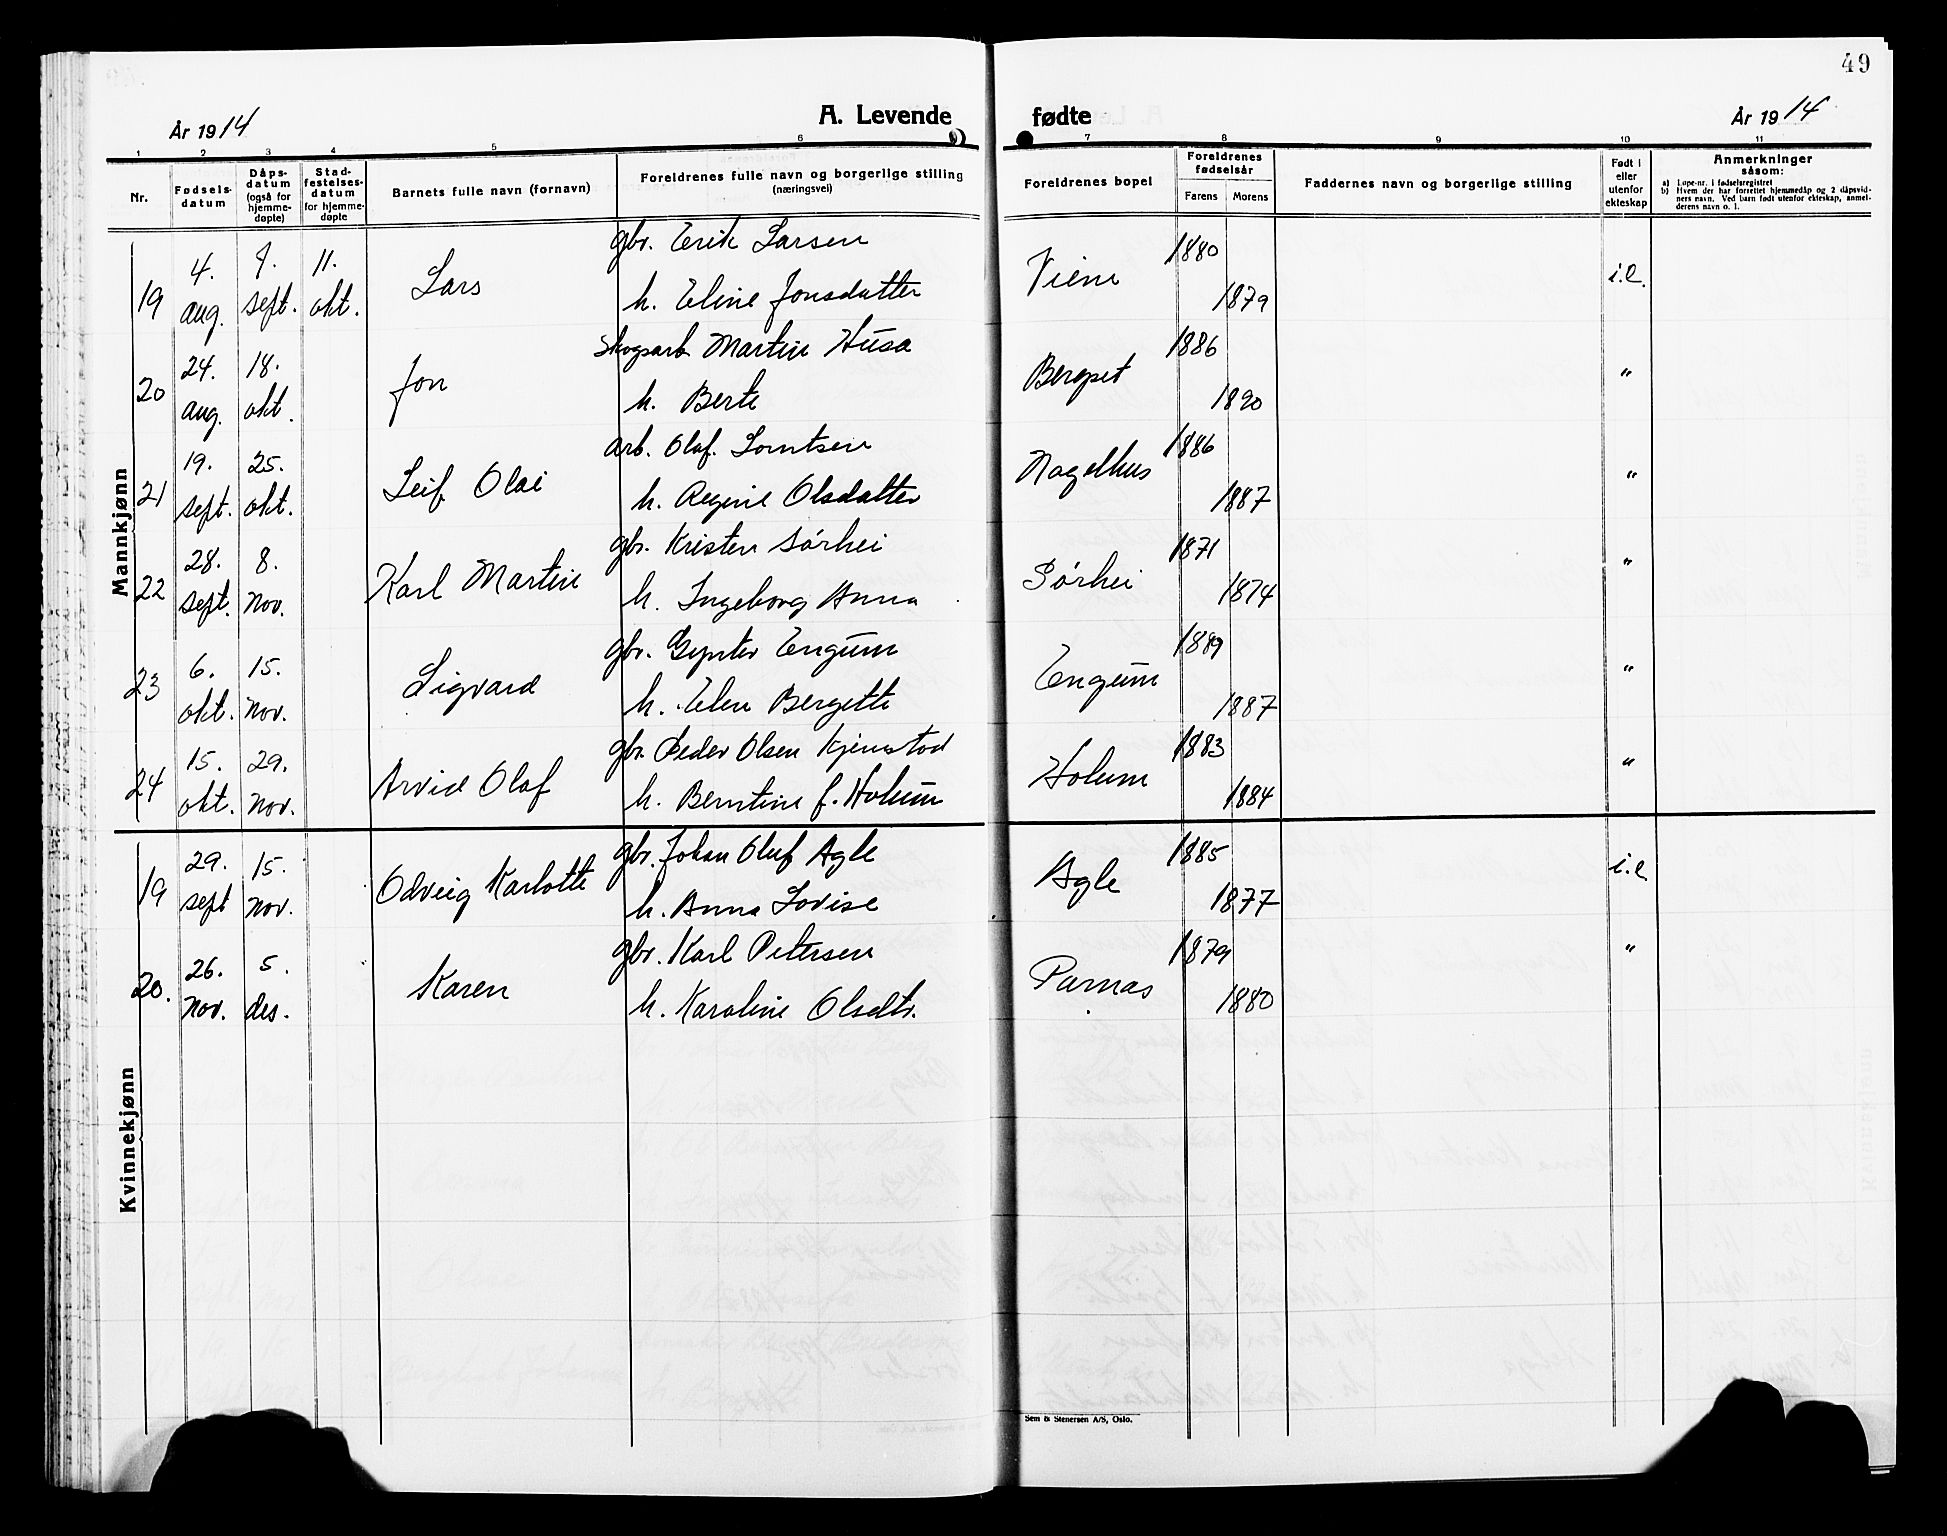 49
År 1914
A. Levende fødte
År 1914
1 2 3 4 5 6 7 8 9 10 11
Nr.
Fødsels-
datum
Dåps-
datum
(også for
hjemme-
døpte)
Stad-
festelses-
datum
for hjemme-
døpte
Barnets fulle navn (fornavn)
Foreldrenes fulle navn og borgerlige stilling
(næringsvei)
Foreldrenes bopel
Foreldrenes
fødselsår
Farens Morens
Faddernes navn og borgerlige stilling
Født i
eller
utenfor
ekteskap
Anmerkninger
såsom:
a) Løpe-nr. i fødselsregistret
b) Hvem der har forrettet hjemmedåp og 2 dåpsvid-
ners navn. Ved barn født utenfor ekteskap, anmel-
derens navn o. l.
Mannkjønn
19 4. aug. sept. 11. okt. Lars
gbr. Erik Larsen
h. Eline Jonsdatter
Viem 1880 1879 i.e.
20 24. aug. 18. okt. Jon
Skogsarb. Martin Husa
h. Berte
Bergset 1886 1890 "
21 19. sept. 25. okt. Leif Olai
arb. Olaf. Lorntsen
h. Regine Olsdatter
Nagelhus 1886 1887 "
22 28. sept. 8. nov. Karl Martin
gbr. Kristen Sørhei
h. Ingeborg Anna
Sørhei 1871 1874 "
23 6. okt. 15. nov. Sigvard
gbr. Gynter Engum
h. Elen Bergette
Engum 1889 1887 "
24 15. okt. 29. nov. Arvid Olaf
gbr. Peder Olsen Kjenstad
h. Berntine f. Holum
Holum 1883 1884 "
Kvinnekjønn
19 29. sept 15. nov. Odveig Karlotte
gbr. Johan Oluf Agle
h. Anna Lovise
Agle 1885 1877 i.e.
20. 26. nov. 5. des. Karen
gbr. Karl Petersen
h. Karoline Olsdtr.
Purnas 1879 1880 "
Sem & Stenersen A/S, Oslo.